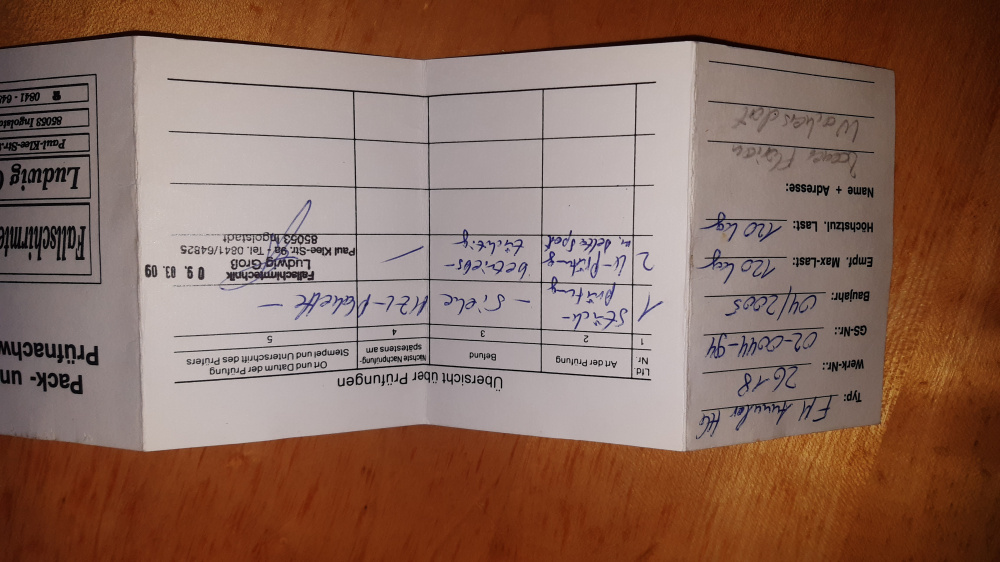 Typ: FM Annular HG
Werk-Nr.: 2618
GS-Nr.: 02-0044-94
Baujahr: 04/2005
Empf. Max-Last: 120 kg
Höchstzul. Last: 120 kg
Name + Adresse:
Florian
Übersicht über Prüfungen
Lfd. Nr.
Art der Prüfung
Befund
Nächste Nachprüfung spätestens am
Ort und Datum der Prüfung
Stempel und Unterschrift des Prüfers
1 2 3 4 5
1 Stück-
prüfung
– Siehe
HZL-Plakette –
2 U-Prüfung
betriebs-
tüchtig
Fallschirmtechnik
Ludwig Groß
Paul Klee-Str. 9a - Tel. 0841/64825
85053 Ingolstadt
09. 03. 09
Pack- un
Prüfnachw
Fallschirmte
Ludwig G
Paul-Klee-Str.
85053 Ingolsta
☎ 0841 - 648